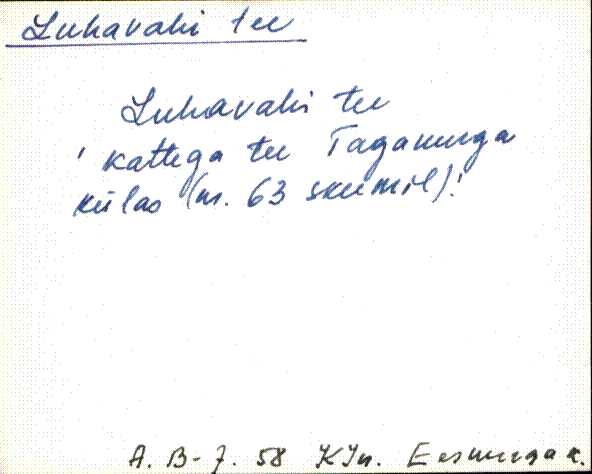 Luhavahi tee
Luhavahi tee
'kattega tee Tagamurga
külas (nr. 63 skeemil)!
A. B-7. 58 KJn. Eesmurga k.